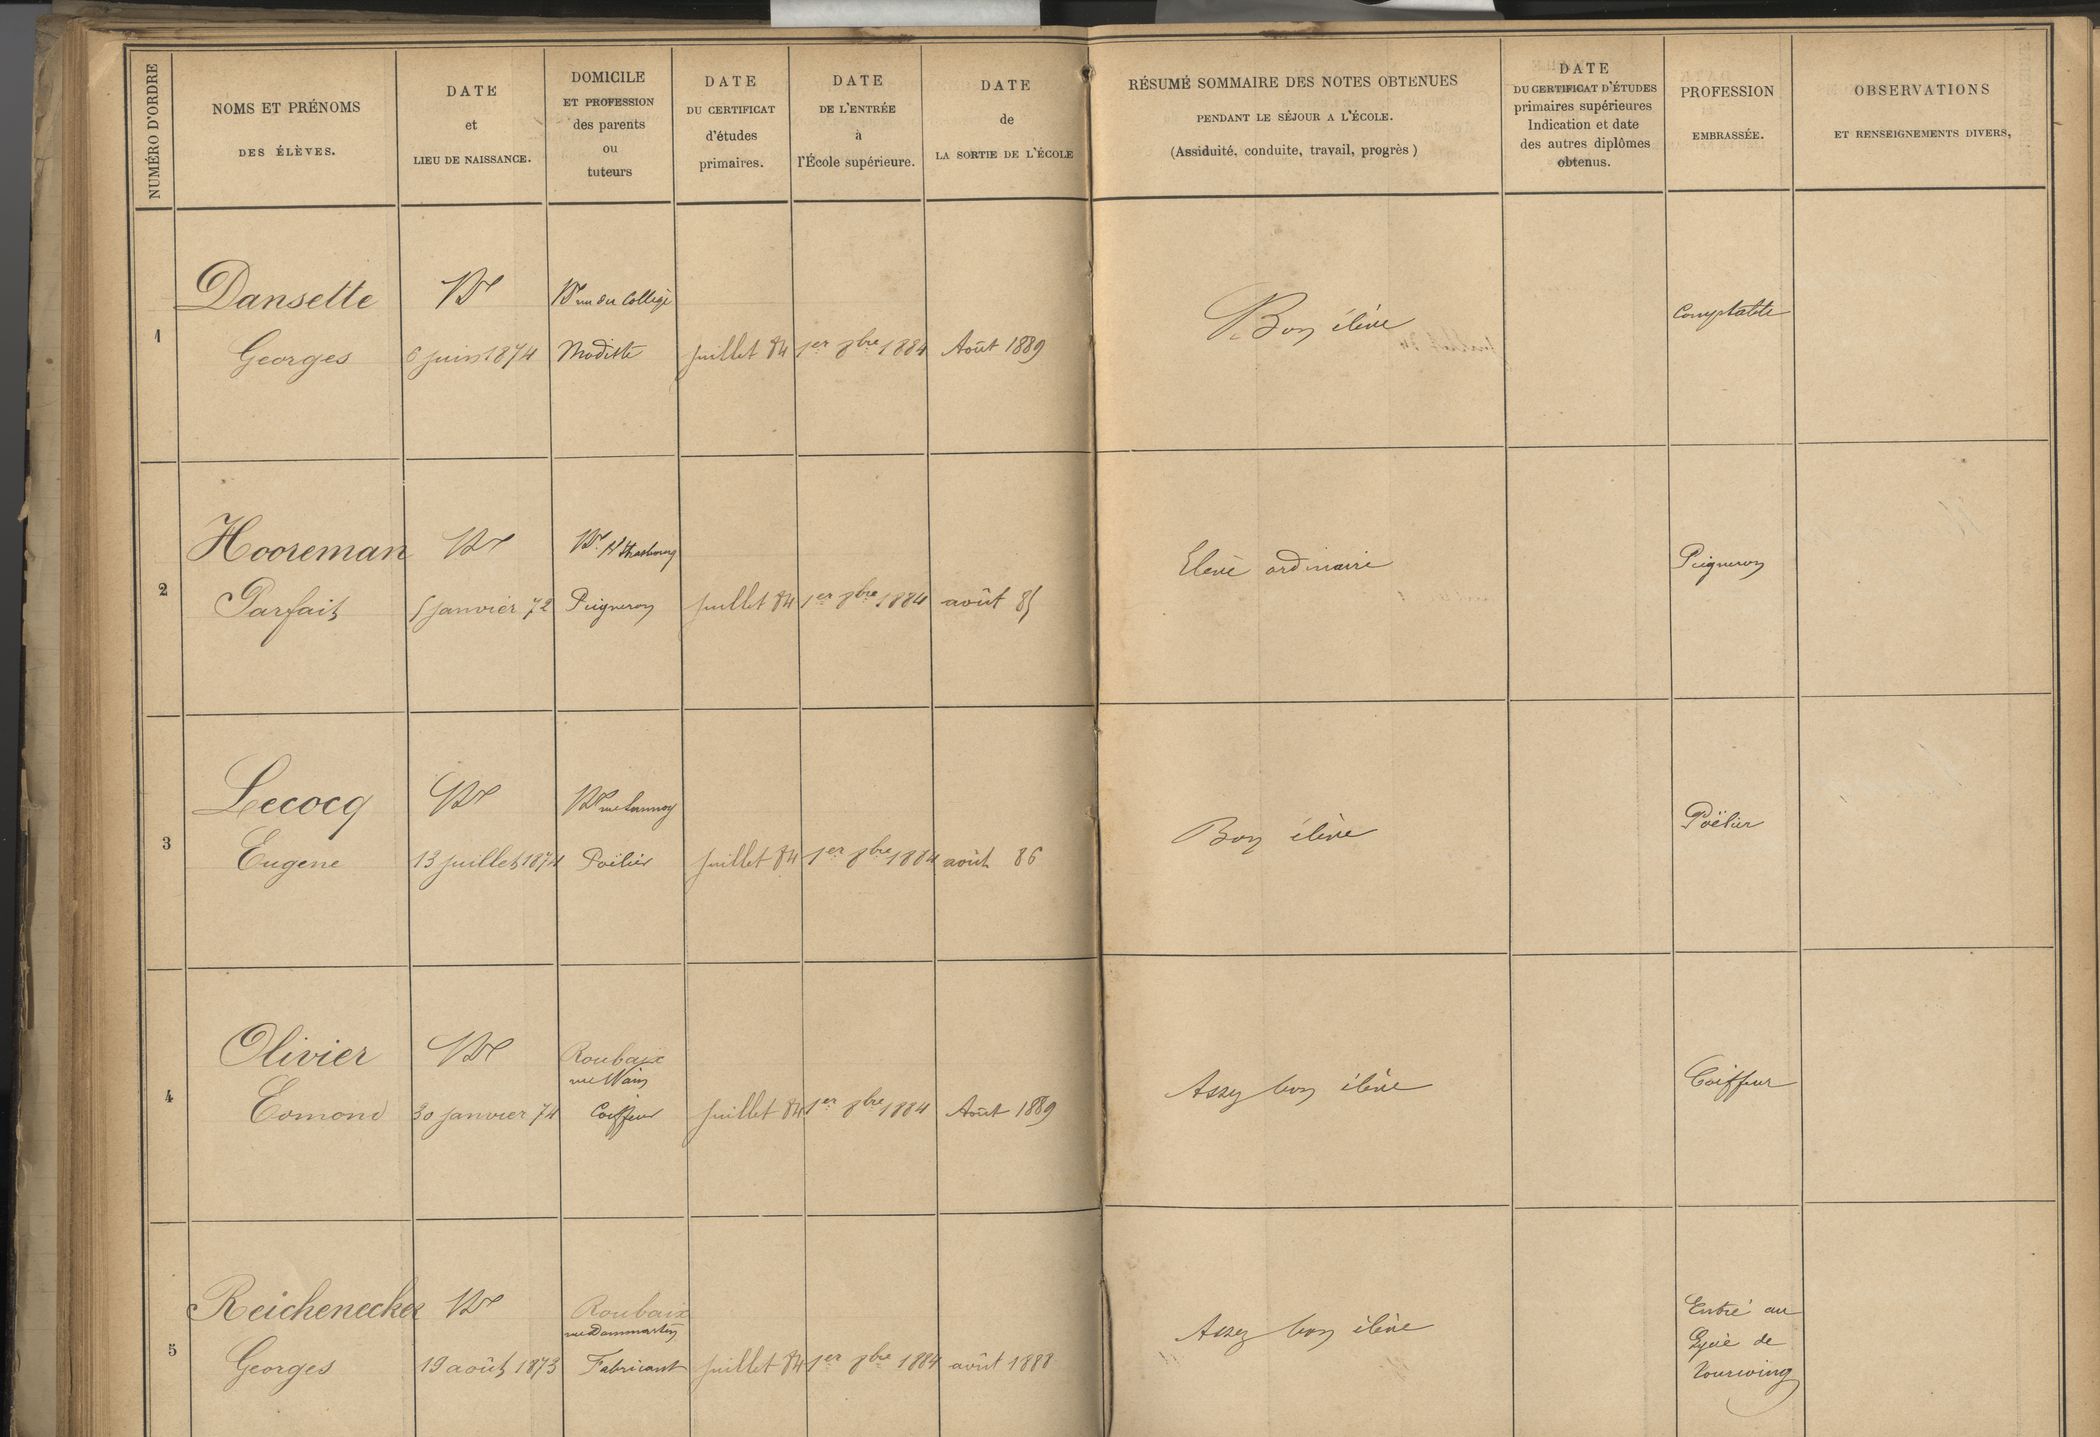 NUMÉRO D'ORDRE
NOMS ET PRÉNOMS
DES ÉLÈVES.
DATE
et
LIEU DE NAISSANCE.
DOMICILE
ET PROFESSION
des parents
ou
tuteurs
DATE
DU CERTIFICAT
d'études
primaires.
DATE
DE L'ENTRÉE
à
l'École supérieure.
DATE
de
LA SORTIE DE L'ÉCOLE
RÉSUMÉ SOMMAIRE DES NOTES OBTENUES
PENDANT LE SÉJOUR A L'ÉCOLE.
(Assiduité, conduite, travail, progrès)
DATE
DU CERTIFICAT D'ÉTUDES
primaires supérieures
Indication et date
des autres diplômes
obtenus.
PROFESSION
EMBRASSÉE.
OBSERVATIONS
ET RENSEIGNEMENTS DIVERS,
1
Dansette
Georges
Bx
6 juin 1874
Bx rue du Collège
Modiste
Juillet 84
1er 8bre 1884
Août 1889
Bon élève
Comptable
2
Hooreman
Parfait
Bx
5 janvier 72
Bx. R Strasbourg
Peigneron
Juillet 84
1er 8bre 1884
août 85
Elève ordinaire
Peigneron
3
Lecocq
Eugene
Bx
13 juillet 1874
Bx rue Lannoy
Poëlier
Juillet 84
1er 8bre 1884
août 86
Bon élève
Poëlier
4
Olivier
Edmond
Bx
30 janvier 74
Roubaix
rue Nain
Coiffeur
Juillet 84
1er 8bre 1884
Août 1889
Assez bon élève
Coiffeur
5
Reichenecker
Georges
Bx
19 août 1873
Roubaix
rue Dammartin
Fabricant
Juillet 84
1er 8bre 1884
août 1888
Assez bon élève
Entré au
Lycée de
Tourcoing